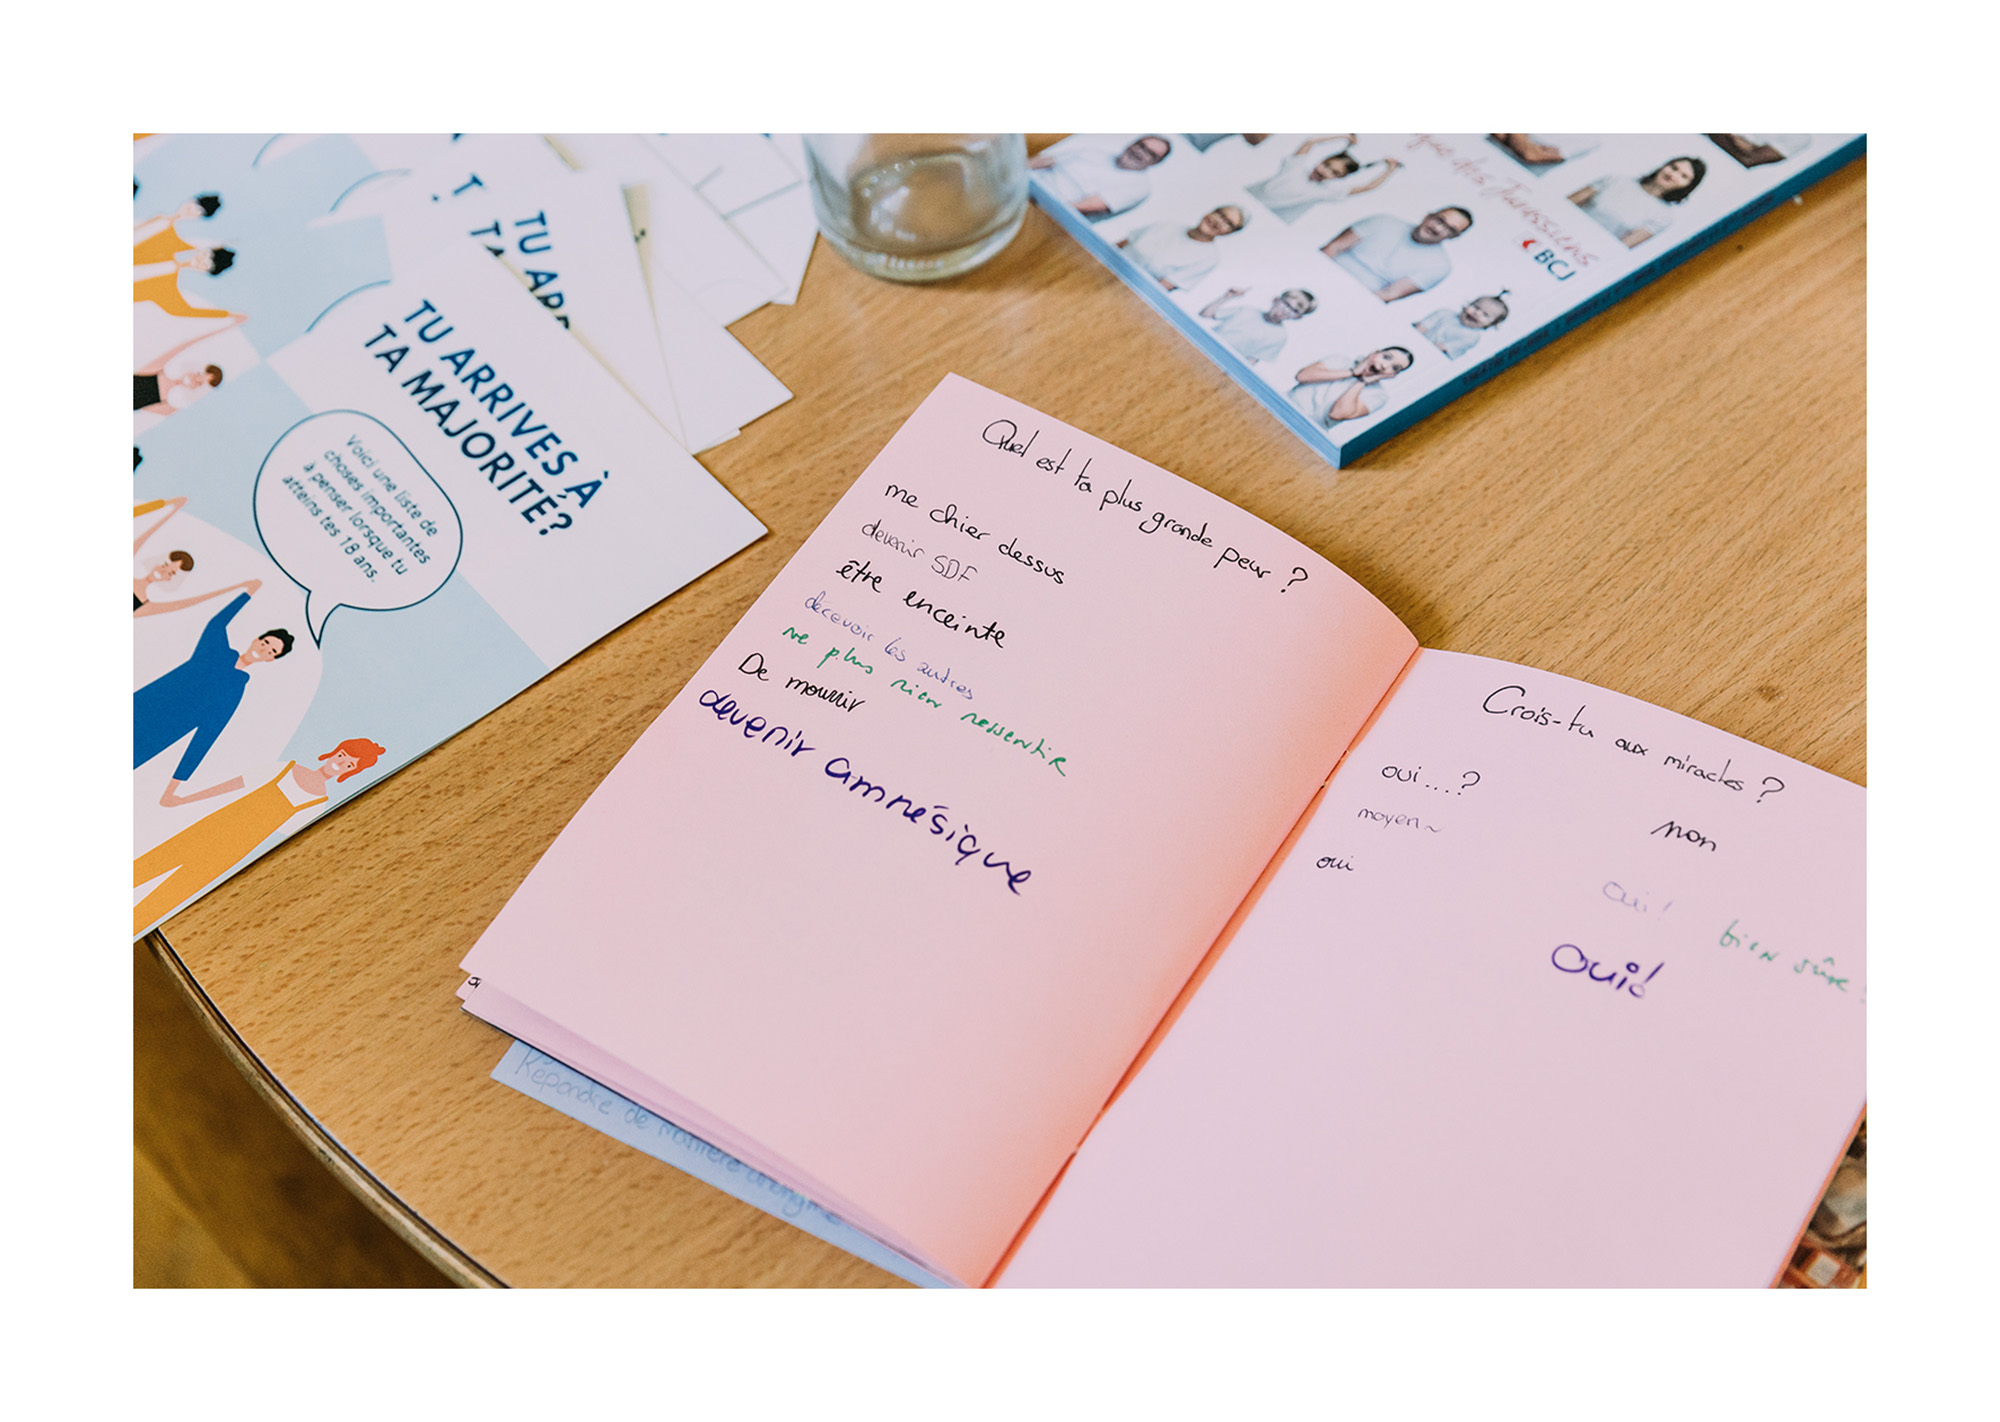 TU ARRIVES À
TA MAJORITÉ?
Voici une liste de
choses importantes
à penser lorsque tu
atteins tes 18 ans.
TU ARR
TA
T
que des Jurassiens
BCJ
Quel est ta plus grande peur ?
me chier dessus
devenir SDF
être enceinte
decevoir les autres
ne plus rien ressentire
De mourrir
devenir amnésique
Crois-tu aux miracles ?
oui...?
moyen~
oui
non
oui!
bien sûre !
Oui!
Répondre de manière anonyme